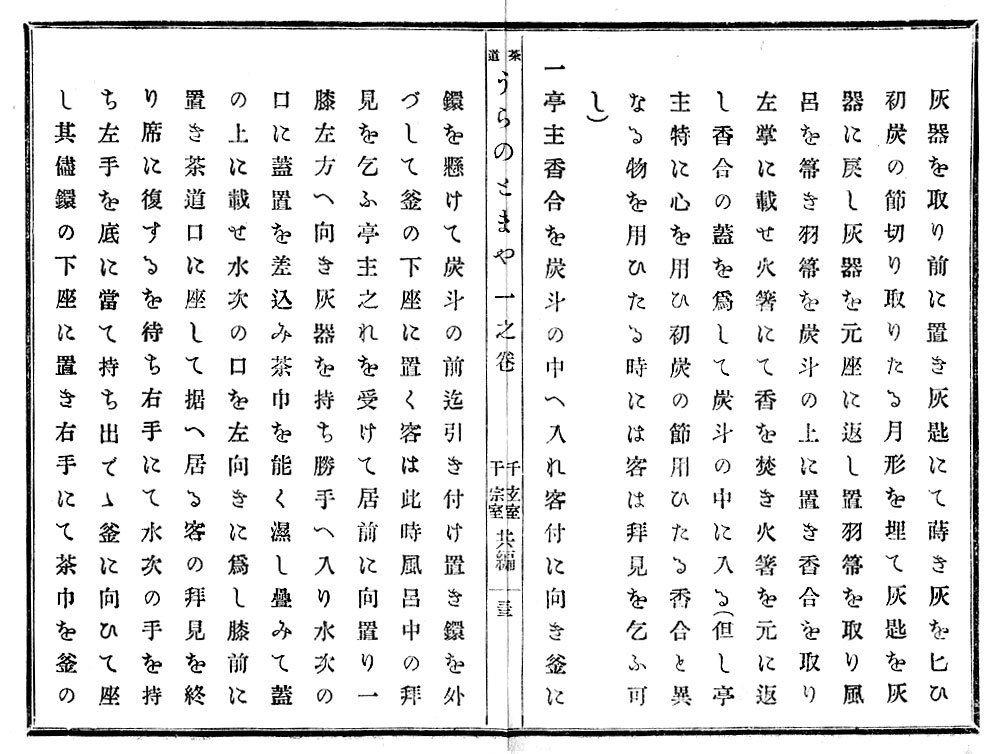 灰器を取り前に置き灰匙にて蒔き灰を匕ひ
初炭の節切り取りたる月形を埋て灰匙を灰
器に戻し灰器を元座に返し置羽箒を取り風
呂を箒き羽箒を炭斗の上に置き香合を取り
左掌に載せ火箸にて香を焚き火箸を元に返
し香合の蓋を爲して炭斗の中に入る(但し亭
主特に心を用ひ初炭の節用ひたる香合と異
なる物を用ひたる時には客は拜見を乞ふ可
し)
一亭主香合を炭斗の中へ入れ客付に向き釜に
茶道うらのとまや 一之卷
千玄室
千宗室
共編
鐶を懸けて炭斗の前迄引き付け置き鐶を外
づして釜の下座に置く客は此時風呂中の拜
見を乞ふ亭主之れを受けて居前に向置り一
膝左方へ向き灰器を持ち勝手へ入り水次の
口に蓋置を差込み茶巾を能く濕し疊みて蓋
の上に載せ水次の口を左向きに爲し膝前に
置き茶道口に座して据へ居る客の拜見を終
り席に復するを待ち右手にて水次の手を持
ち左手を底に當て持ち出でゝ釜に向ひて座
し其儘鐶の下座に置き右手にて茶巾を釜の